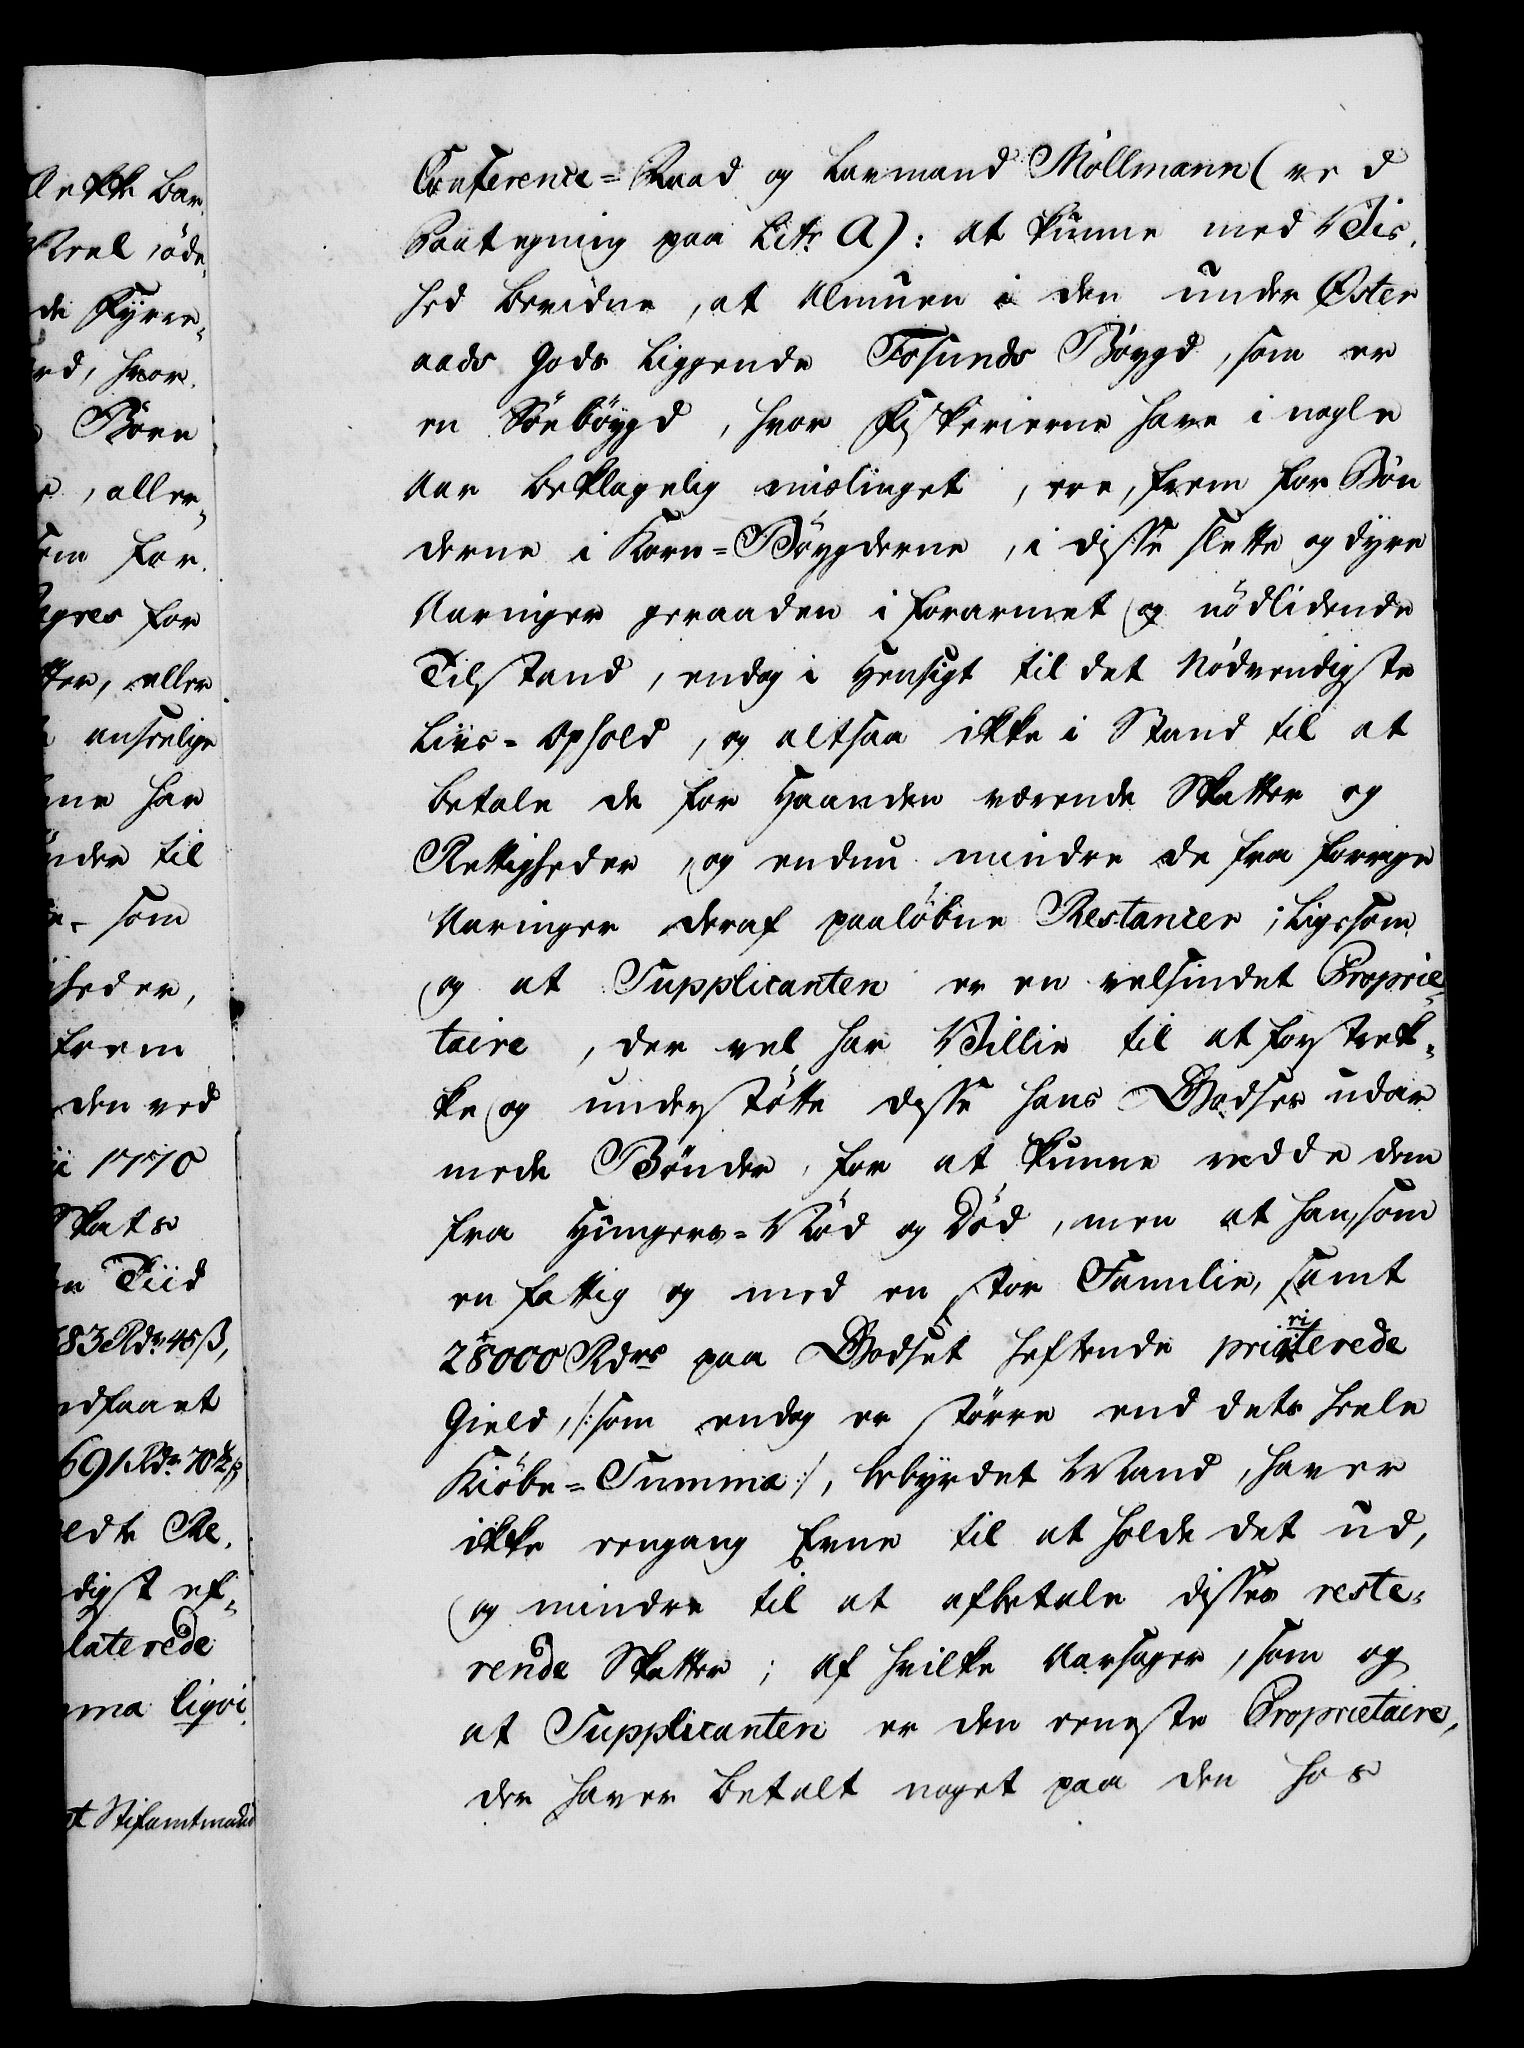 lette bar,
Kreb, öde,
de Fyrre,
rd, hvor,
Børn
, aller,
som for,
agres for
ter, eller
anseelige
ne har
nder til
som
heder,
frem
den ved
ii 1770
Skats
n Tiid
83 Rdr 45 ß,
ndfaaet
691 Rdr 70½ ß
eldte Re,
digst ef,
laterede
ma liqvi,
t Stiftamtmand
Conference=Raad og Lavmand Möllmann (ved
Paategning paa Litr A): at kunne med Vis,
hed bevidne, at Almuen i den under Öster
aads Gods liggende Fosunds Böygd, som er
en Söeböygd, hvor Fiskerierne have i nogle
Aar beklagelig mislinget, ere, frem for Bön
derne i Korn=Böygderne, i disse slette og dyre
Aaringer geraaden i forarmet og nödlidende
Tilstand, endog i Hensigt til det Nödvendigste
Livs=Ophold, og altsaa ikke i Stand til at
betale de for Haanden værende Skatter og
Rettigheder, og endnu mindre de fra forrige
Aaringer deraf paalöbne Restancer; Ligesom
og at Supplicanten er en velsindet Proprie,
taire, der vel har Villie til at forstrek,
ke og understötte disse hans Godses udar
mede Bönder, for at kunne redde dem
fra Hungers=Nöd og Död, men at han, som
en fattig og med en stor Familie, samt
28000 Rdrs paa Godset heftende prioriterede
Gield, /:som endog er större end dets heele
Kiöbe=Summa:/, bebyrdet Mand, haver
ikke eengang Evne til at holde det ud,
og mindre til at afbetale disses reste,
rende Skatter; Af hvilke Aarsager, som og
at Supplicanten er den eeneste Proprietaire,
der haver betalt noget paa den hos